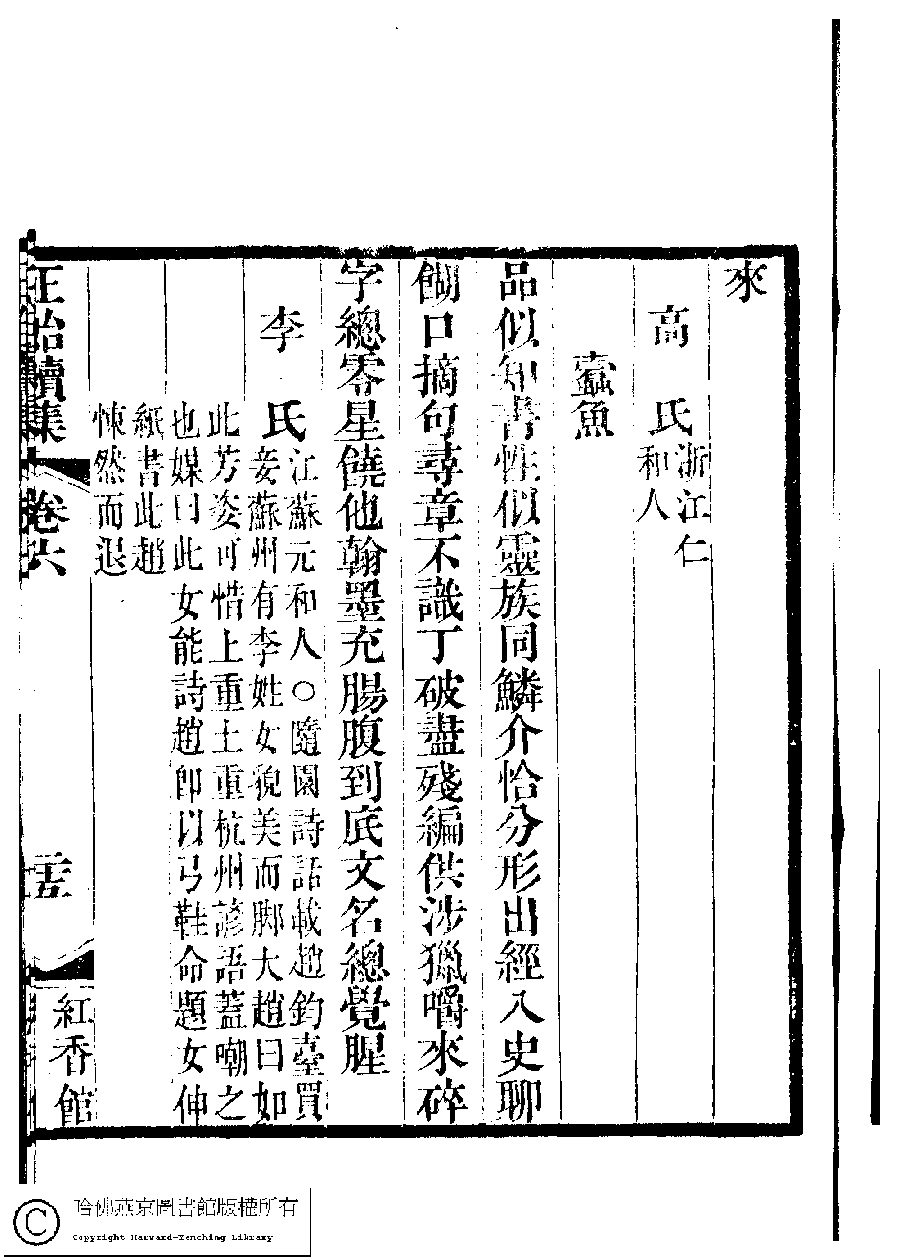 來
高氏浙江仁
和人
蠹魚
品似知書性似靈族同鱗介恰分形出經入史聊
餬口摘句尋章不識丁破盡殘編供涉獵嚼來碎
字總零星饒他翰墨充腸腹到底文名總覺腥
李氏江蘇元和人○隨園詩話載趙鈞臺買
妾蘇州有李姓女貌美而脚大趙曰如
此芳姿可惜上重土重杭州諺語蓋嘲之
也媒曰此女能詩趙卽以弓鞋命題女伸
紙書此趙
悚然而退
正始續集 卷六 二十五 紅香館
哈佛燕京圖書館版權所有
Copyright Harvard-Yenching Library